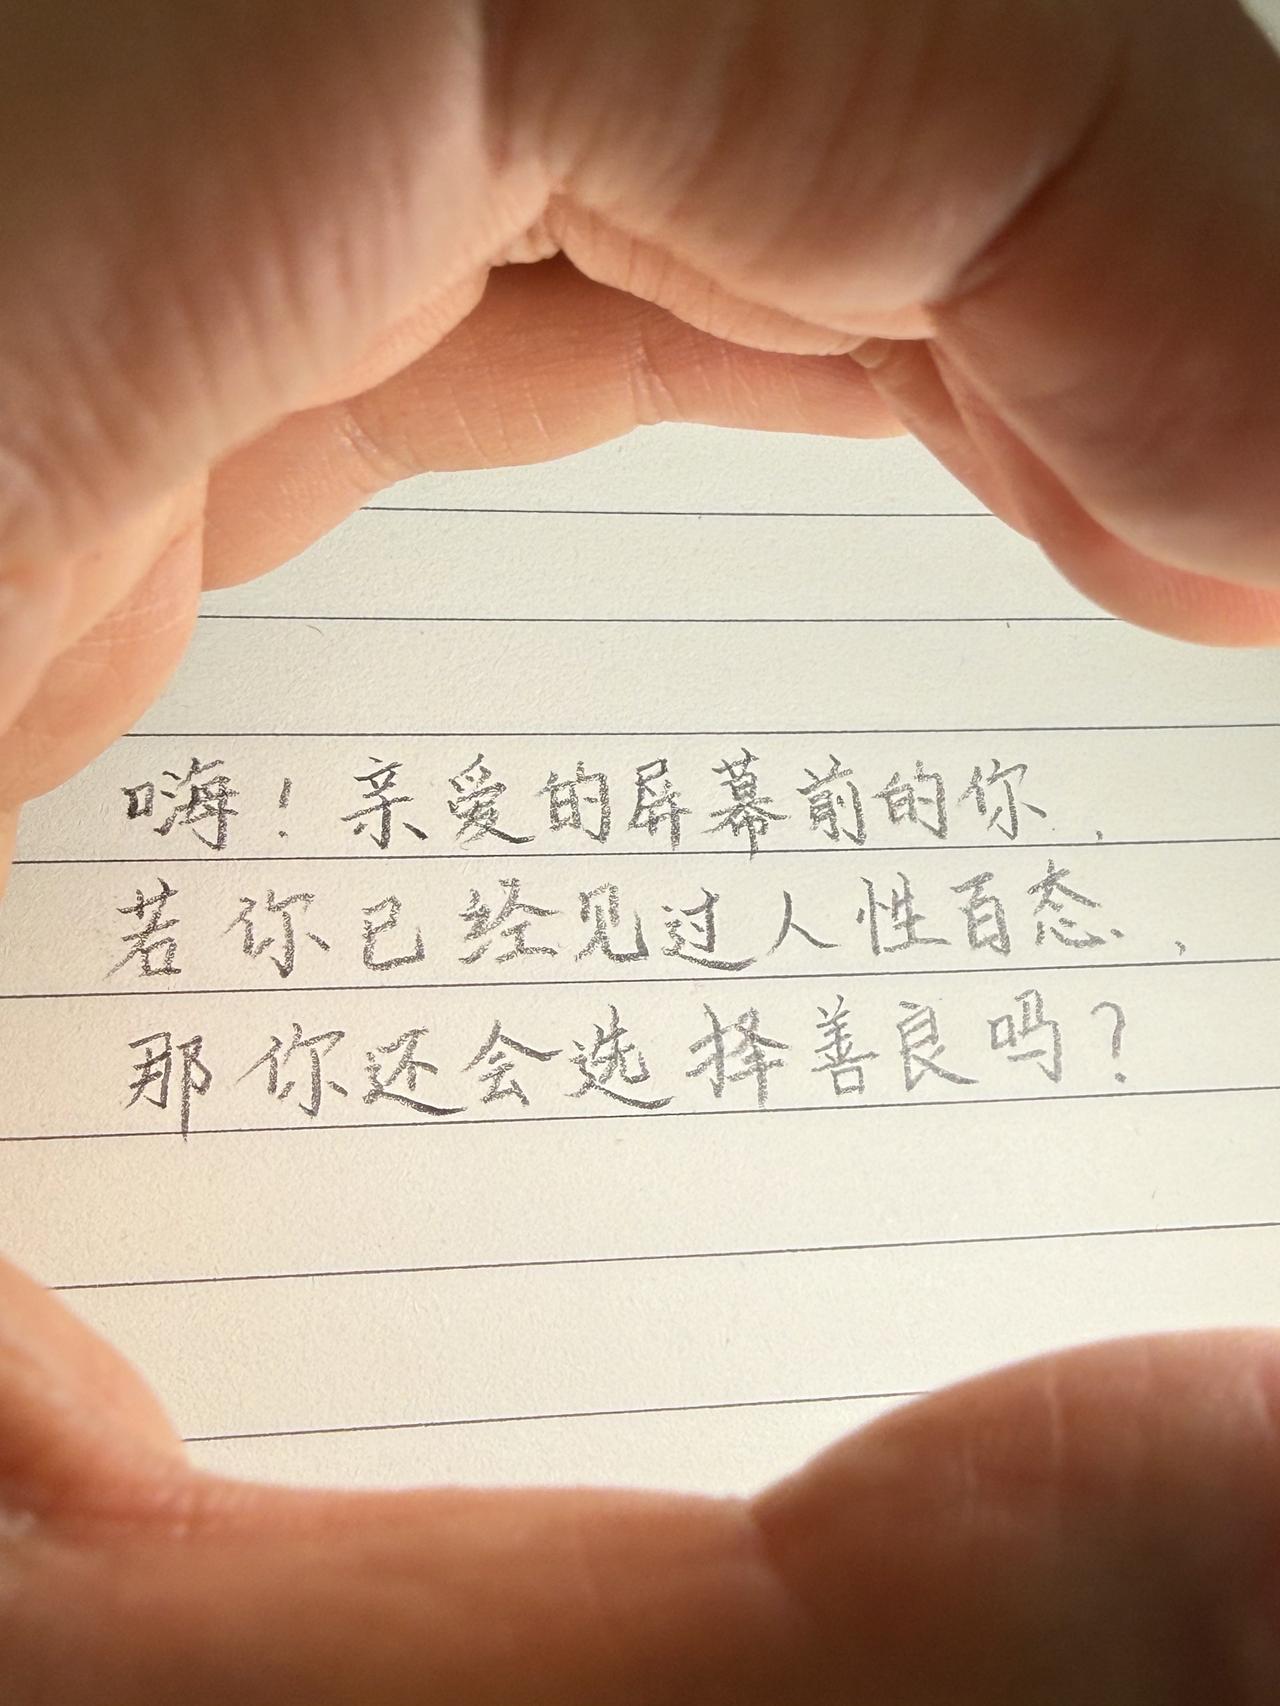 嗨！亲爱的屏幕前的你，
若你已经见过人性百态，
那你还会选择善良吗？